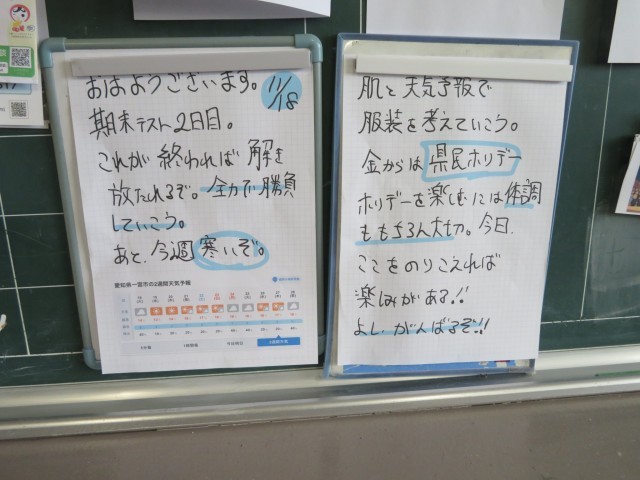 おはようございます。
11/18
期末テスト2日目。
これが終われば解き
放たれるぞ。全力で勝負
していこう。
あと、今週寒いぞ。
愛知県一宮市の2週間天気予報
肌と天気予報で
服装を考えていこう。
金からは県民ホリデー
ホリデーを楽しむには体調
ももちろん大切。今日、
ここをのりこえれば
楽しみがある!!
よし、がんばるぞ!!